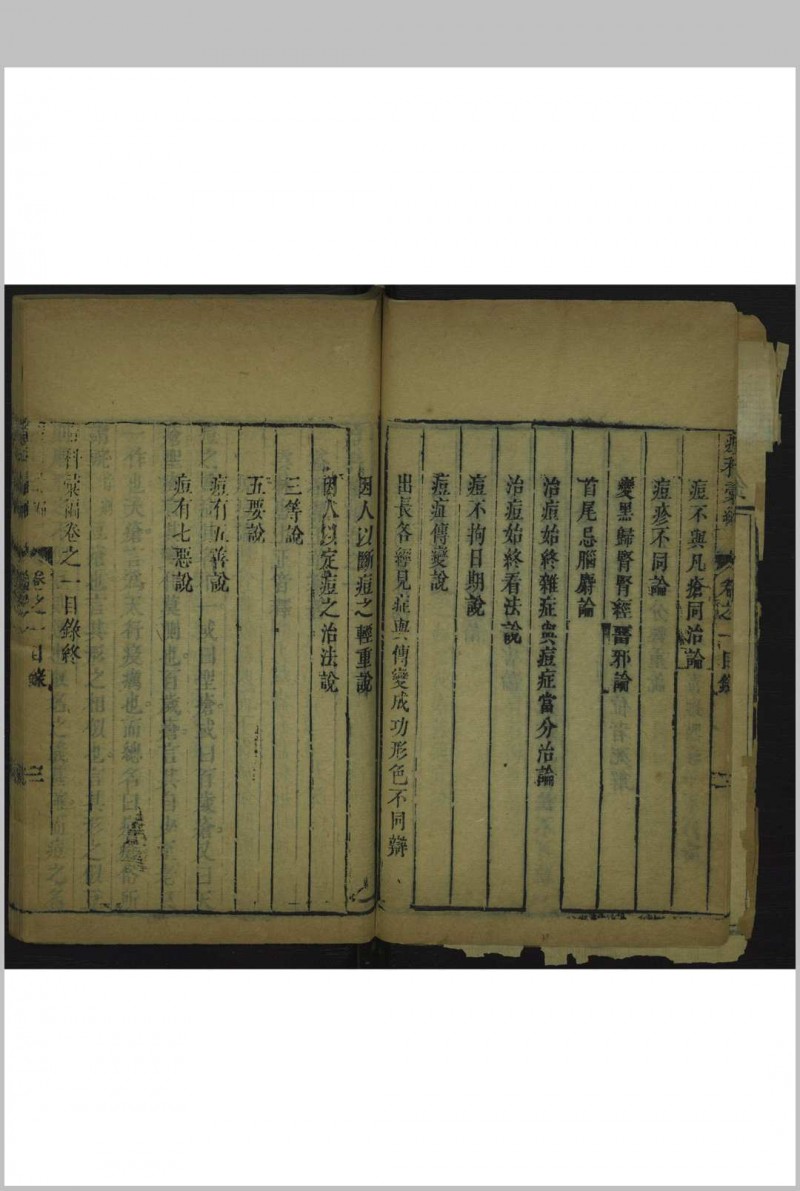 痘科彙編 卷之一目錄 二
痘不與凡瘡同治論
痘疹不同論
變黑歸腎腎經醫邪論
首尾忌腦麝論
治痘始終雜症與痘症當分治論
治痘始終看法說
痘不拘日期說
痘症傳變說
出長各經見症與傳變成功形色不同辯
因人以斷痘之輕重說
因人以定痘之治法說
三等說
五要說
痘有五善說
痘有七惡說
痘科彙編卷之一目錄終
卷之一目錄 三